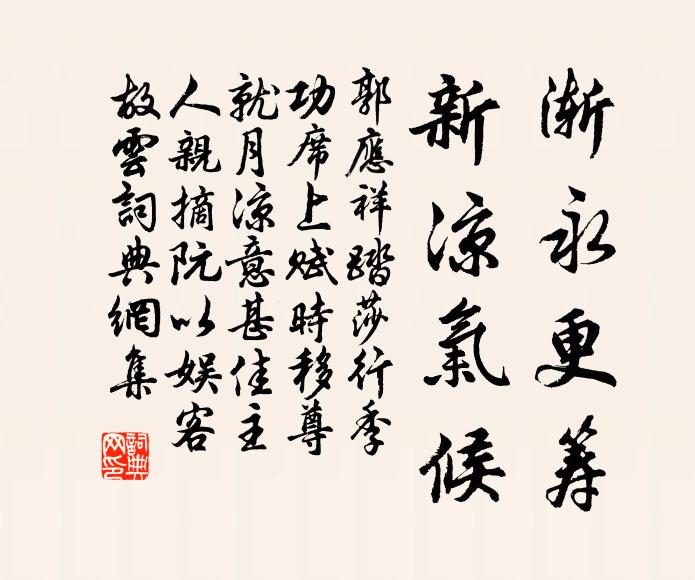 漸永更籌
新涼氣候
郭應祥踏莎行季
功席上賦時移尊
就月涼意甚佳主
人親摘阮以娛客
故雲詞典網集
詞典網印